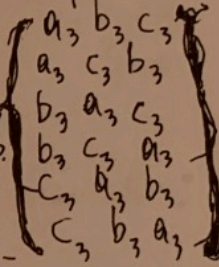 a₃ b₃ c₃
a₃ c₃ b₃
b₃ a₃ c₃
b₃ c₃ a₃
c₃ a₃ b₃
c₃ b₃ a₃